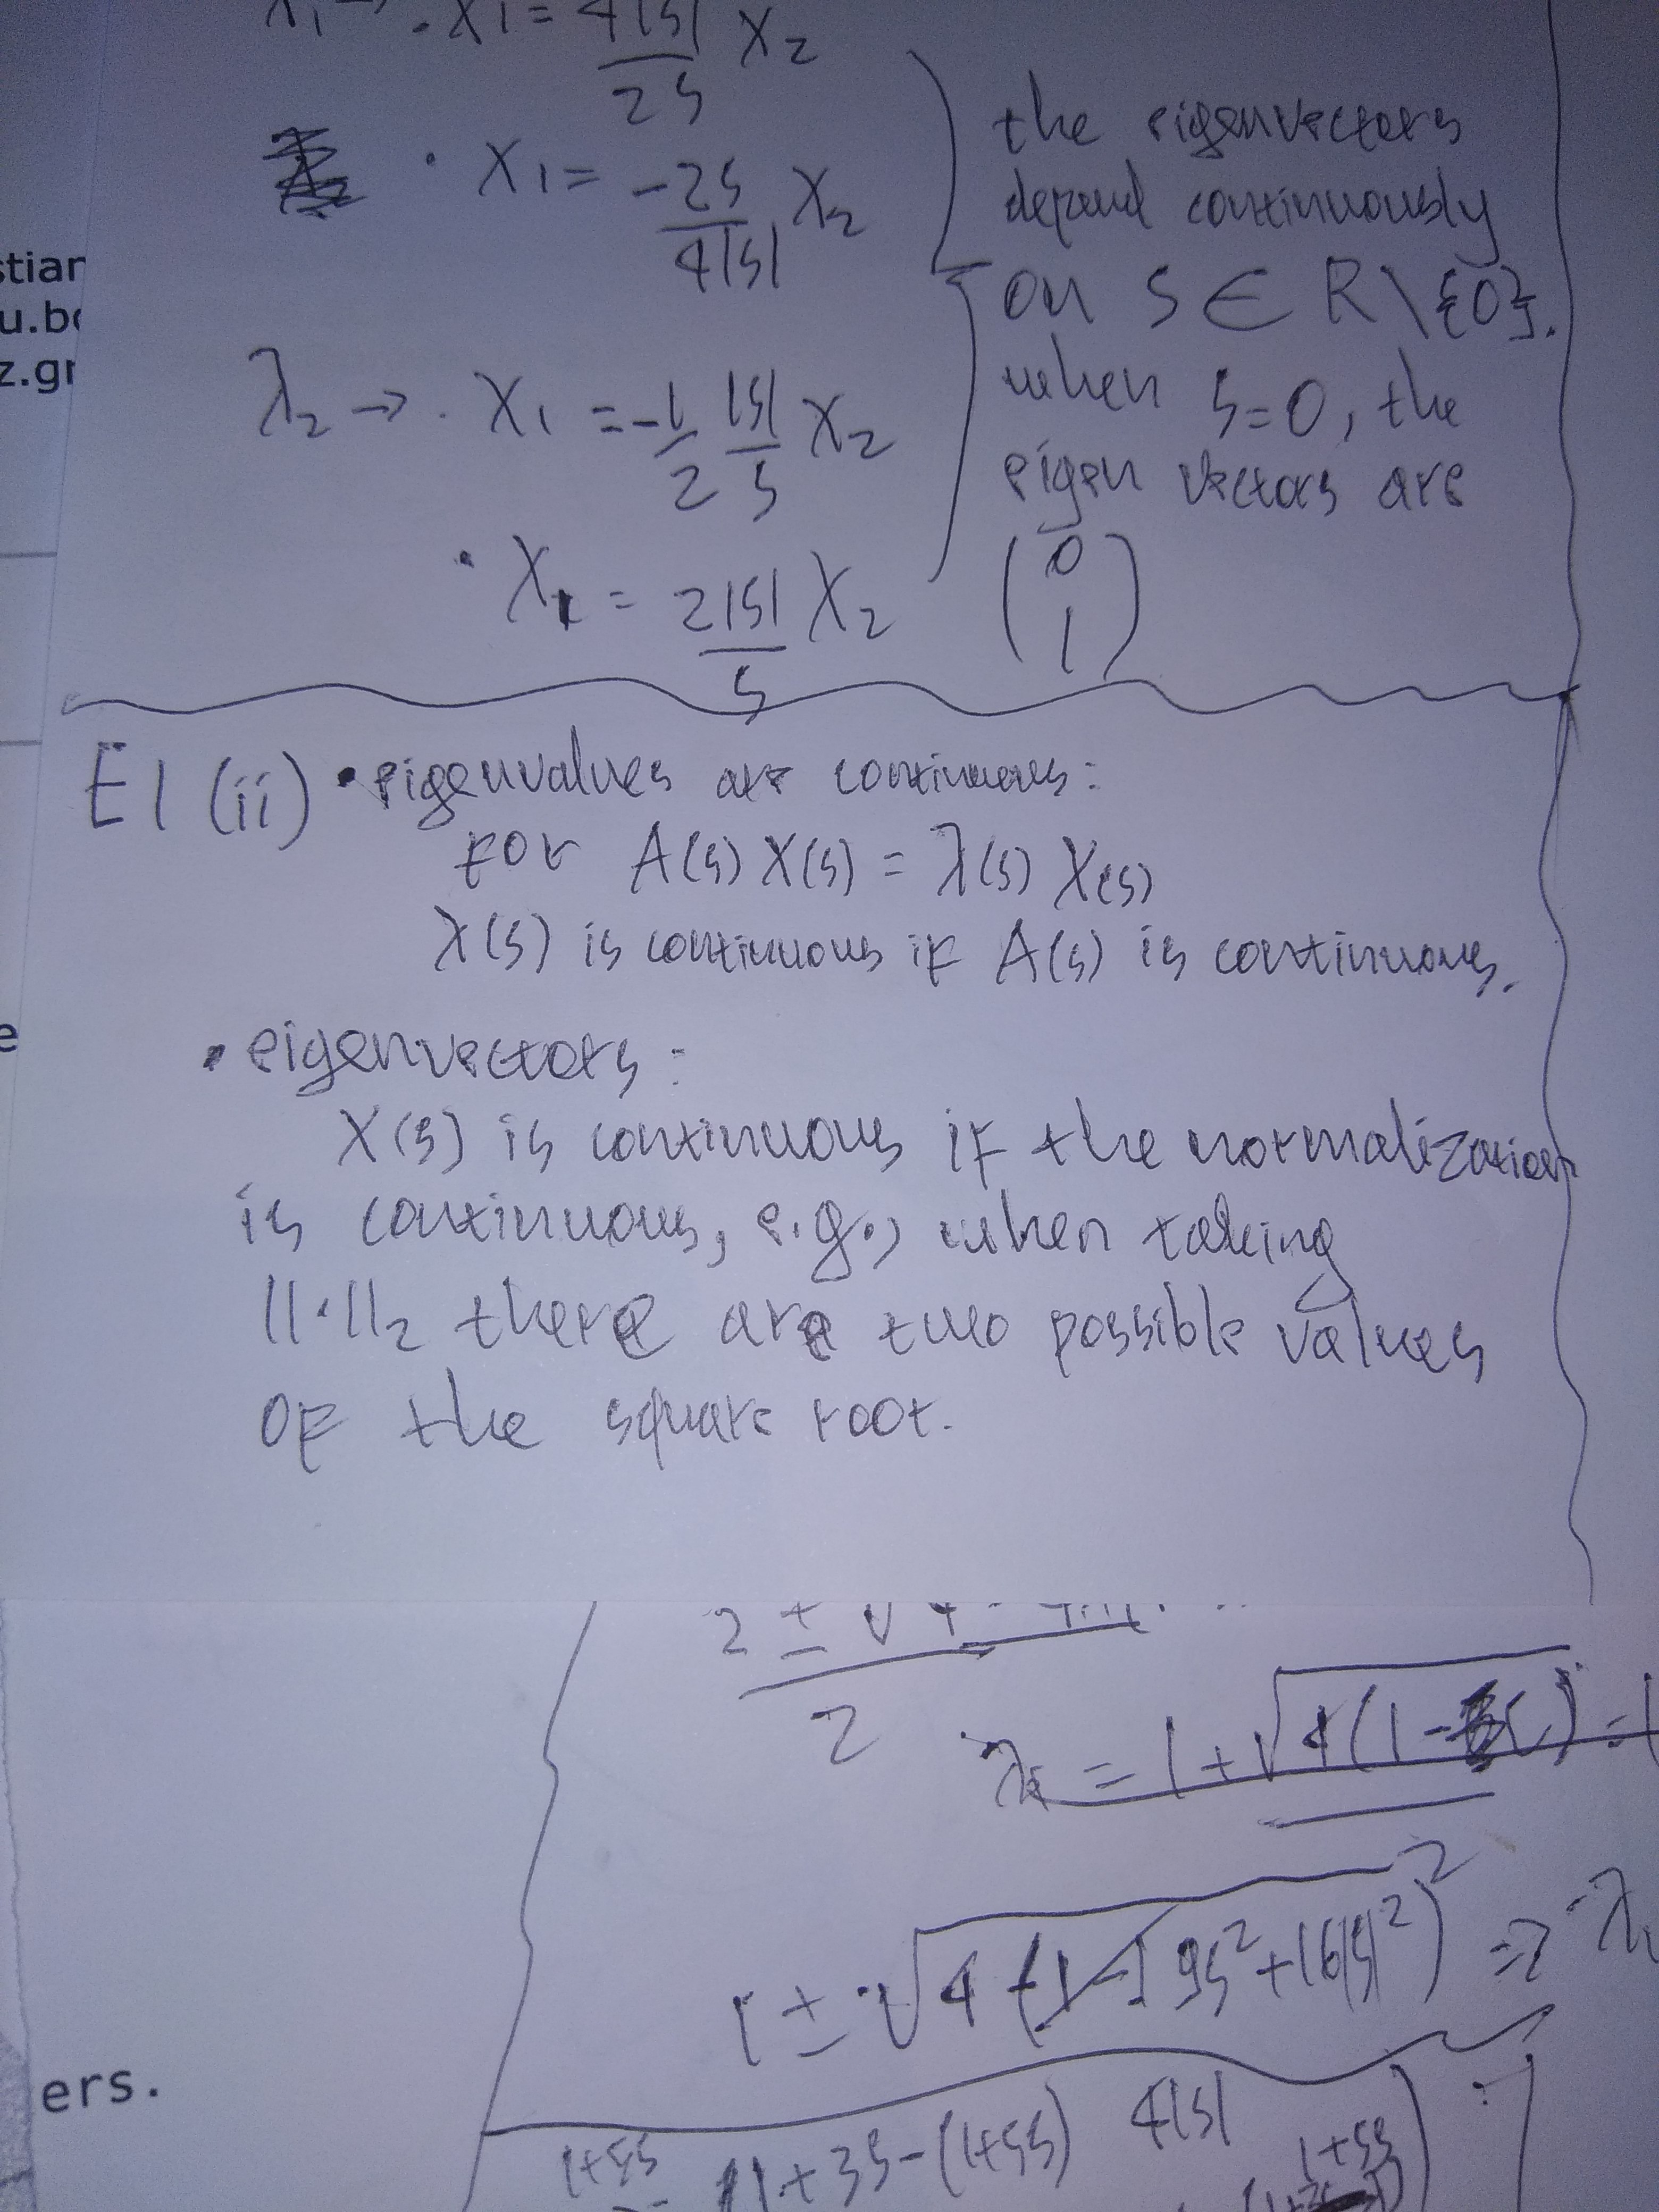 λ₁ → · X₁ = 4|s|/2s X₂
· X₁ = -2s/4|s| X₂
λ₂ → · X₁ = -1/2 |s|/s X₂
· X₁ = 2|s|/s X₂
the eigenvectors
depend continuously
on s ∈ R\{0}.
when s=0, the
eigen vectors are
(0
1)
stian
u.bo
z.gr
e
E1 (ii) • eigenvalues are continuous:
for A(s) X(s) = λ(s) X(s)
λ(s) is continuous if A(s) is continuous.
• eigenvectors:
X(s) is continuous if the normalization
is continuous, e.g., when taking
||·||₂ there are two possible values
of the square root.
2 ±
2
= 1 + √4(1-
1 ± √4 9s² + 16|s|²)² => λ₁
1+5s 1+3s-(1+5s) 4|s| 1+5s
ers.